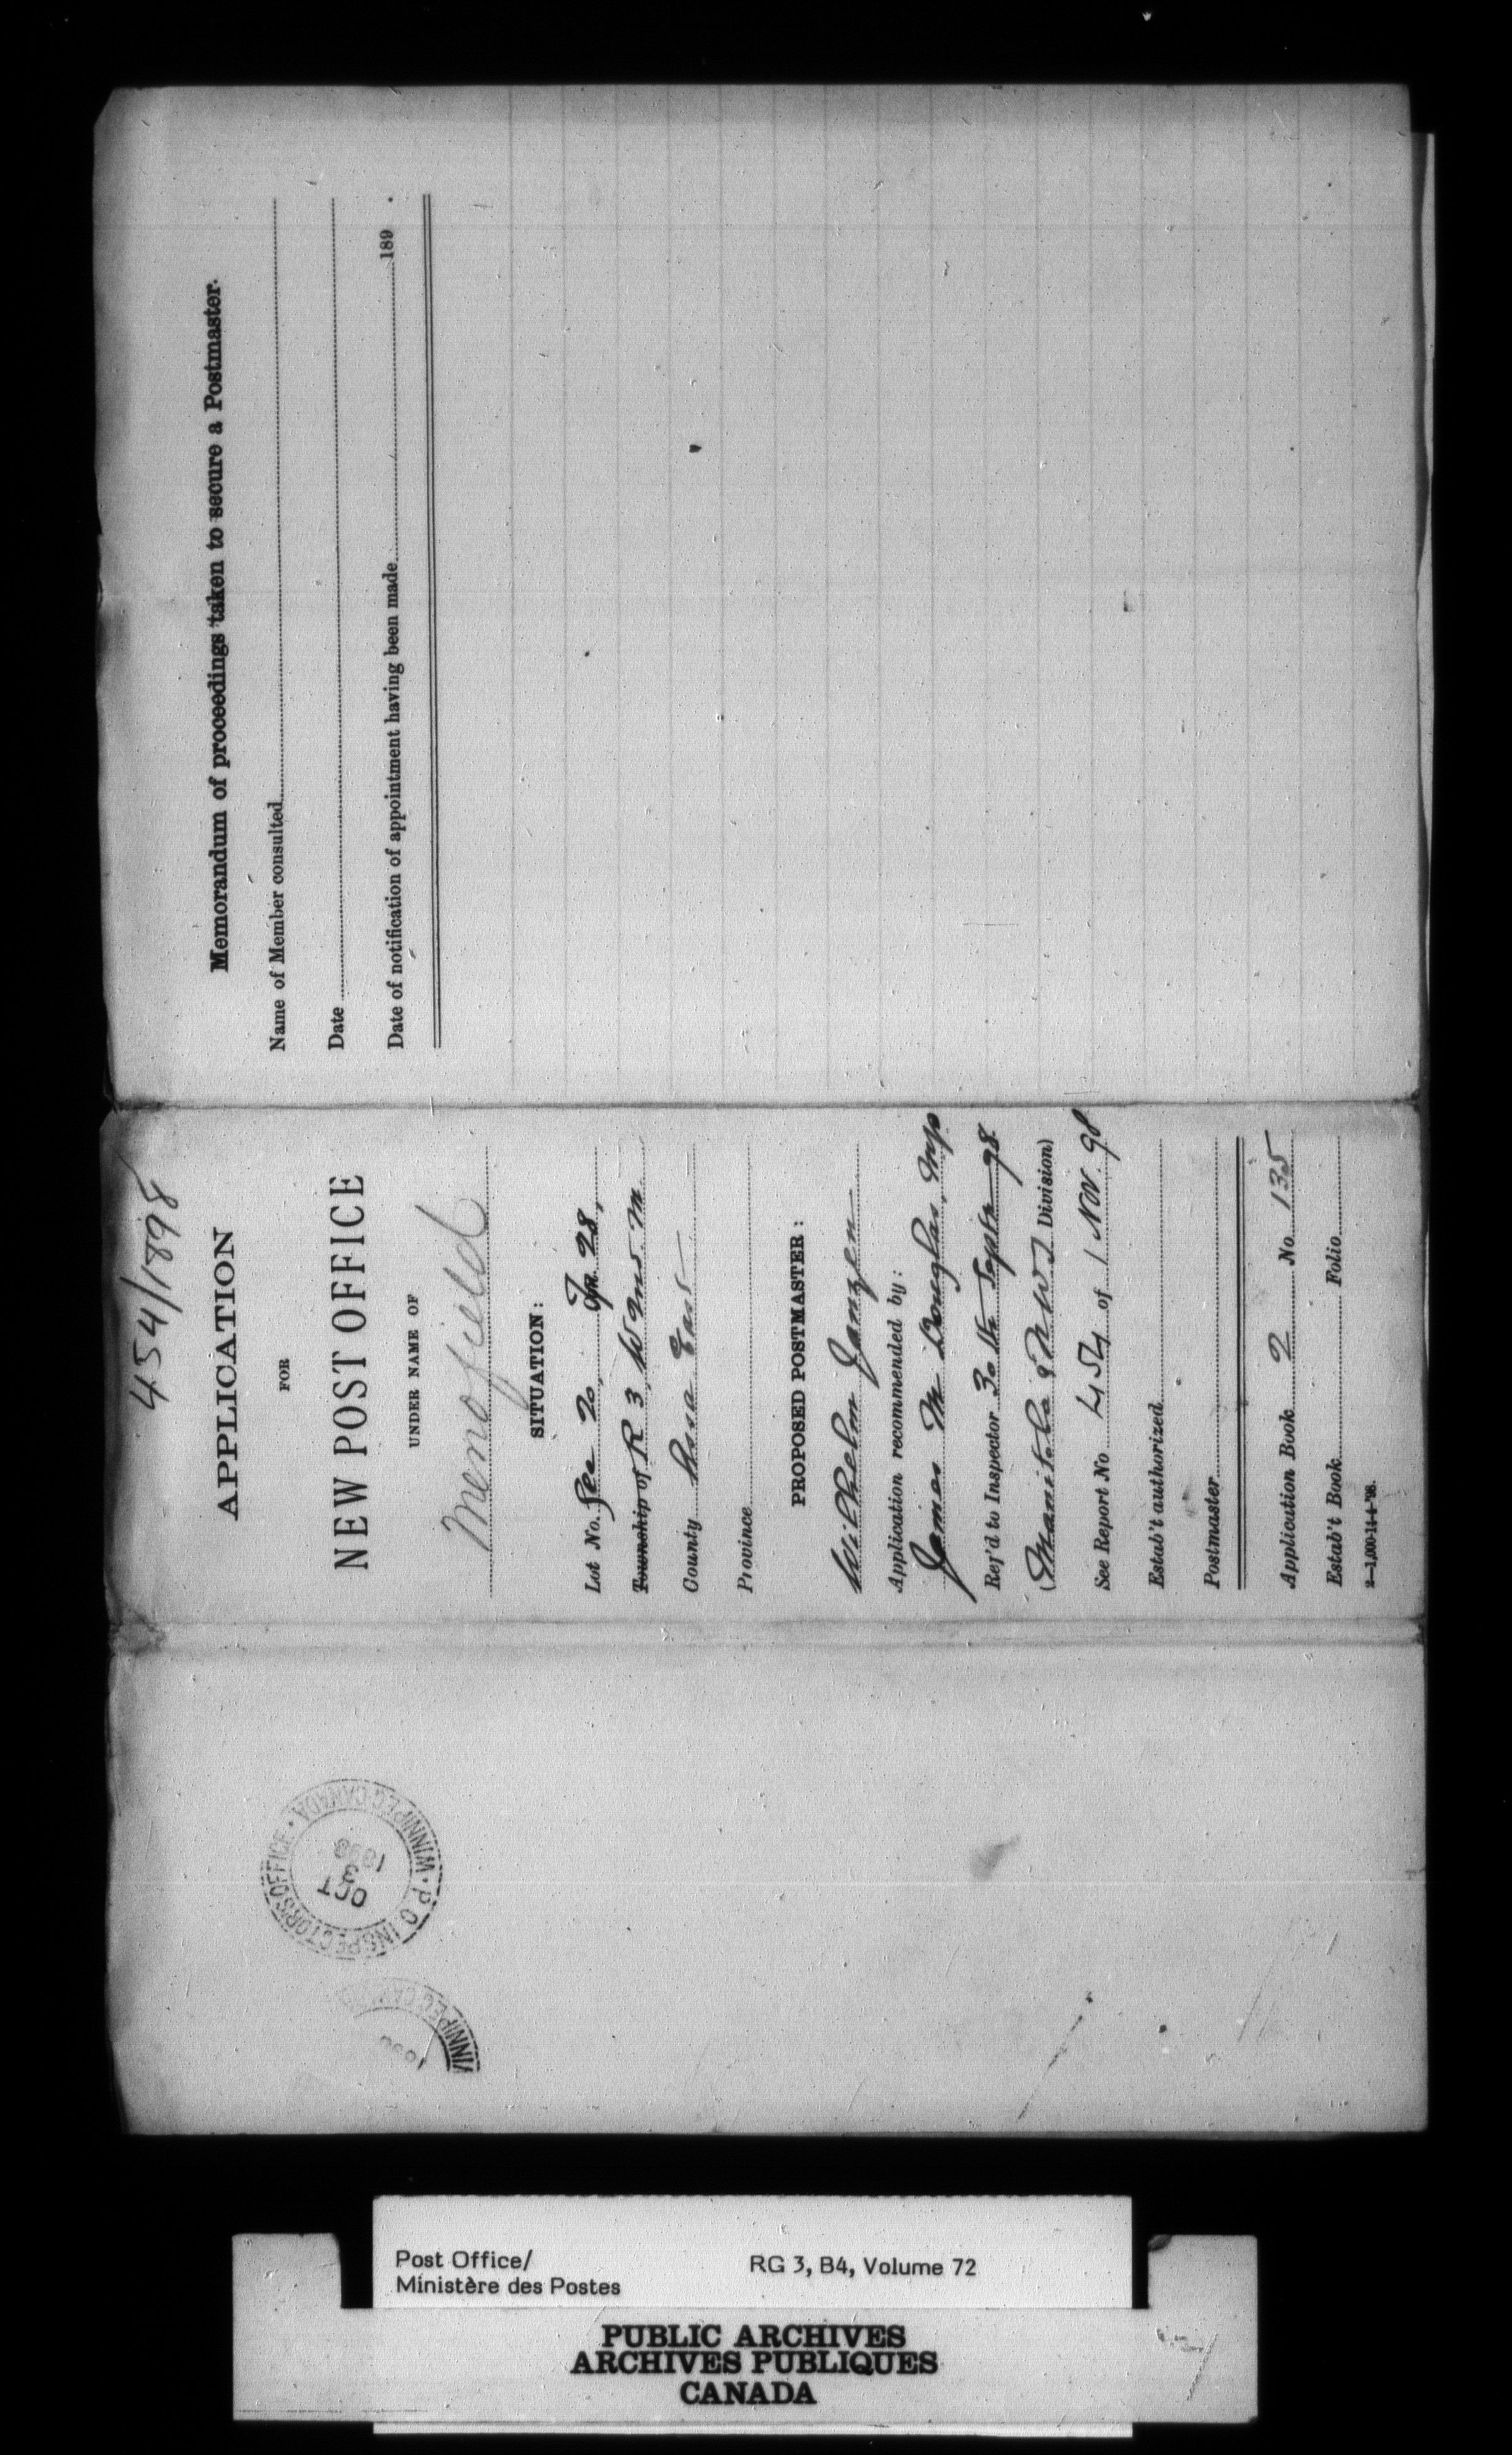 Memorandum of proceedings taken to secure a Postmaster.
Name of Member consulted
Date
Date of notification of appointment having been made 189 .
454/1898
APPLICATION
FOR
NEW POST OFFICE
UNDER NAME OF
Menofield
SITUATION:
Lot No. Sec 20, Tp. 28,
Township of R 3, W 2nd M
County Assa East
Province
PROPOSED POSTMASTER:
Wilhelm Janzen
Application recommended by:
James M Douglas, MP
Ref'd to Inspector 30th Septr 98
(Manitoba & NWT Division)
See Report No 454 of 1 Nov. 98
Estab't authorized
Postmaster
Application Book 2 No. 135
Estab't Book Folio
2—1,000-14-4-'98.
P O INSPECTOR'S OFFICE • WINNIPEG CANADA •
OCT
3
1898
WINNIPEG CANADA
Post Office/
Ministère des Postes
RG 3, B4, Volume 72
PUBLIC ARCHIVES
ARCHIVES PUBLIQUES
CANADA